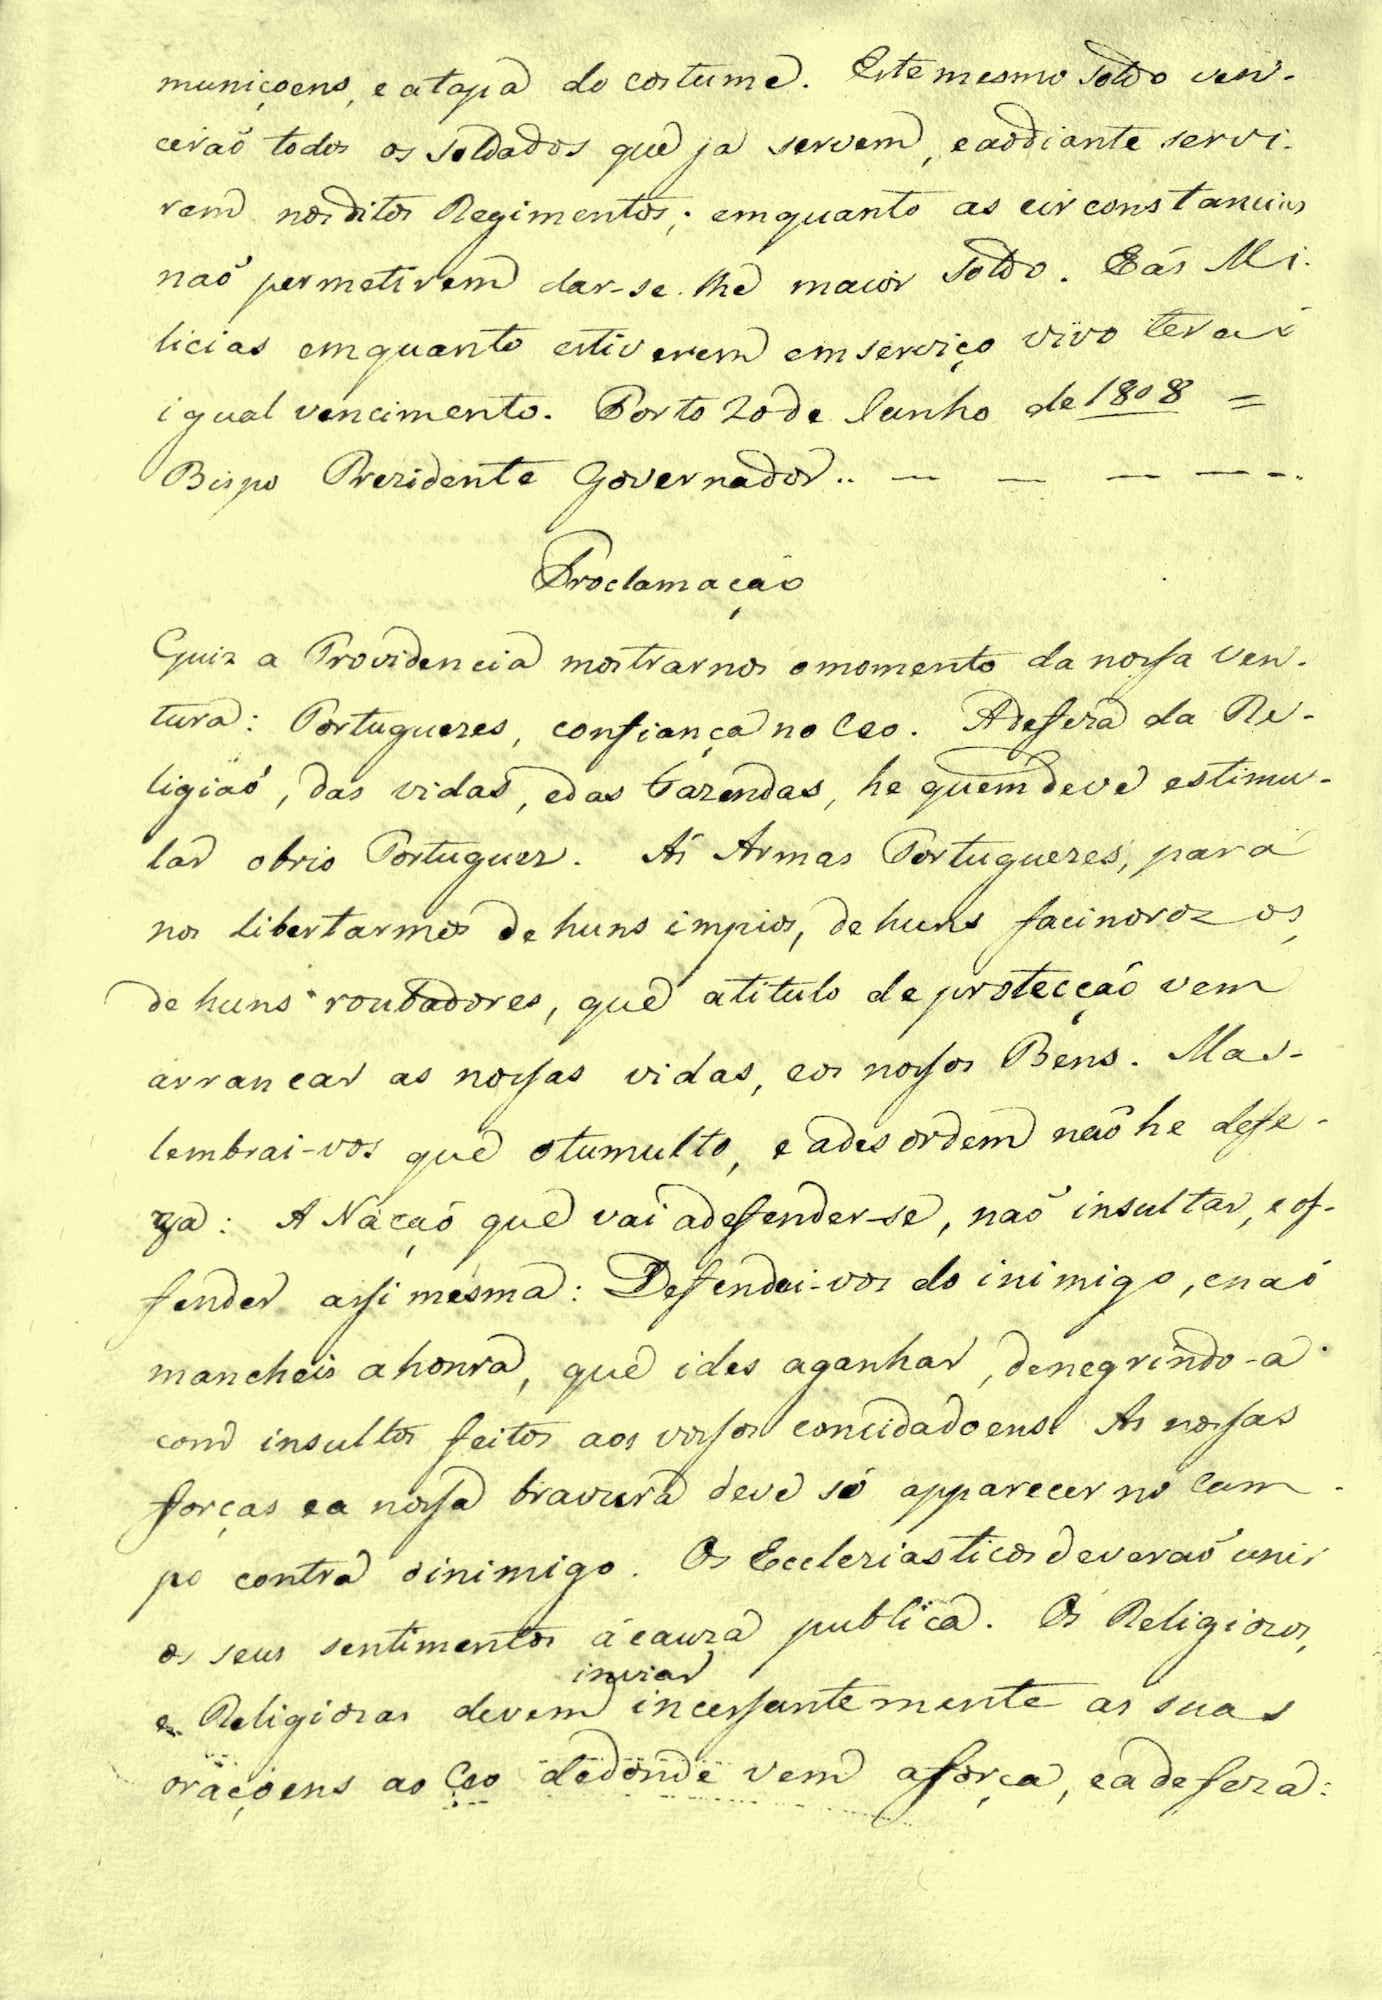 muniçoens, e atapa do costume. Este mesmo soldo ven-
ceraõ todos os soldados que ja servem, eaodiante servi-
rem nos ditos Regimentos; emquanto as circonstancias
naõ permetirem dar-se-lhe maior soldo. E ás Mi-
licias emquanto estiverem em serviço vivo teraõ
igual vencimento. Porto 20 de Junho de 1808 =
Bispo Prezidente Governador.. — — — — -..
Proclamação
Quiz a Providencia mostrarnos o momento da nossa ven-
tura: Portuguezes, confiança no Ceo. A defeza da Re-
ligiaõ, das vidas, edas fazendas, he quem deve estimu-
lar obrio Portuguez. Ás Armas Portuguezes, para
nos libertarmos de huns impios, de huns facinorozos,
de huns roubadores, que atitulo de protecçaõ vem
arrancar as nossas vidas, eos nossos Bens. Mas-
lembrai-vos que otumulto, e adesordem naõ he defe-
za: A Naçaõ que vai adeffender-se, naõ insultar, e of-
fender assi mesma: Deffendei-vos do inimigo, enaõ
mancheis ahonra, que ides aganhar, denegrindo-a
com insultos feitos aos vossos concidadoens. As nossas
forças ea nossa bravura deve só apparecer no Cam-
po contra oinimigo. Os Eccleziasticos deveraõ unir
os seus sentimentos ácauza publica. Os Religiozos,
inviar
e Religiozas devem incessantemente as suas
oraçoens ao Ceo dedonde vem aforça, eadefeza: